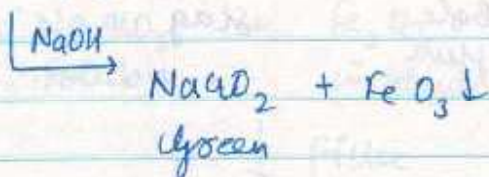 NaOH
NaCrO₂ + FeO₃ ↓
Green